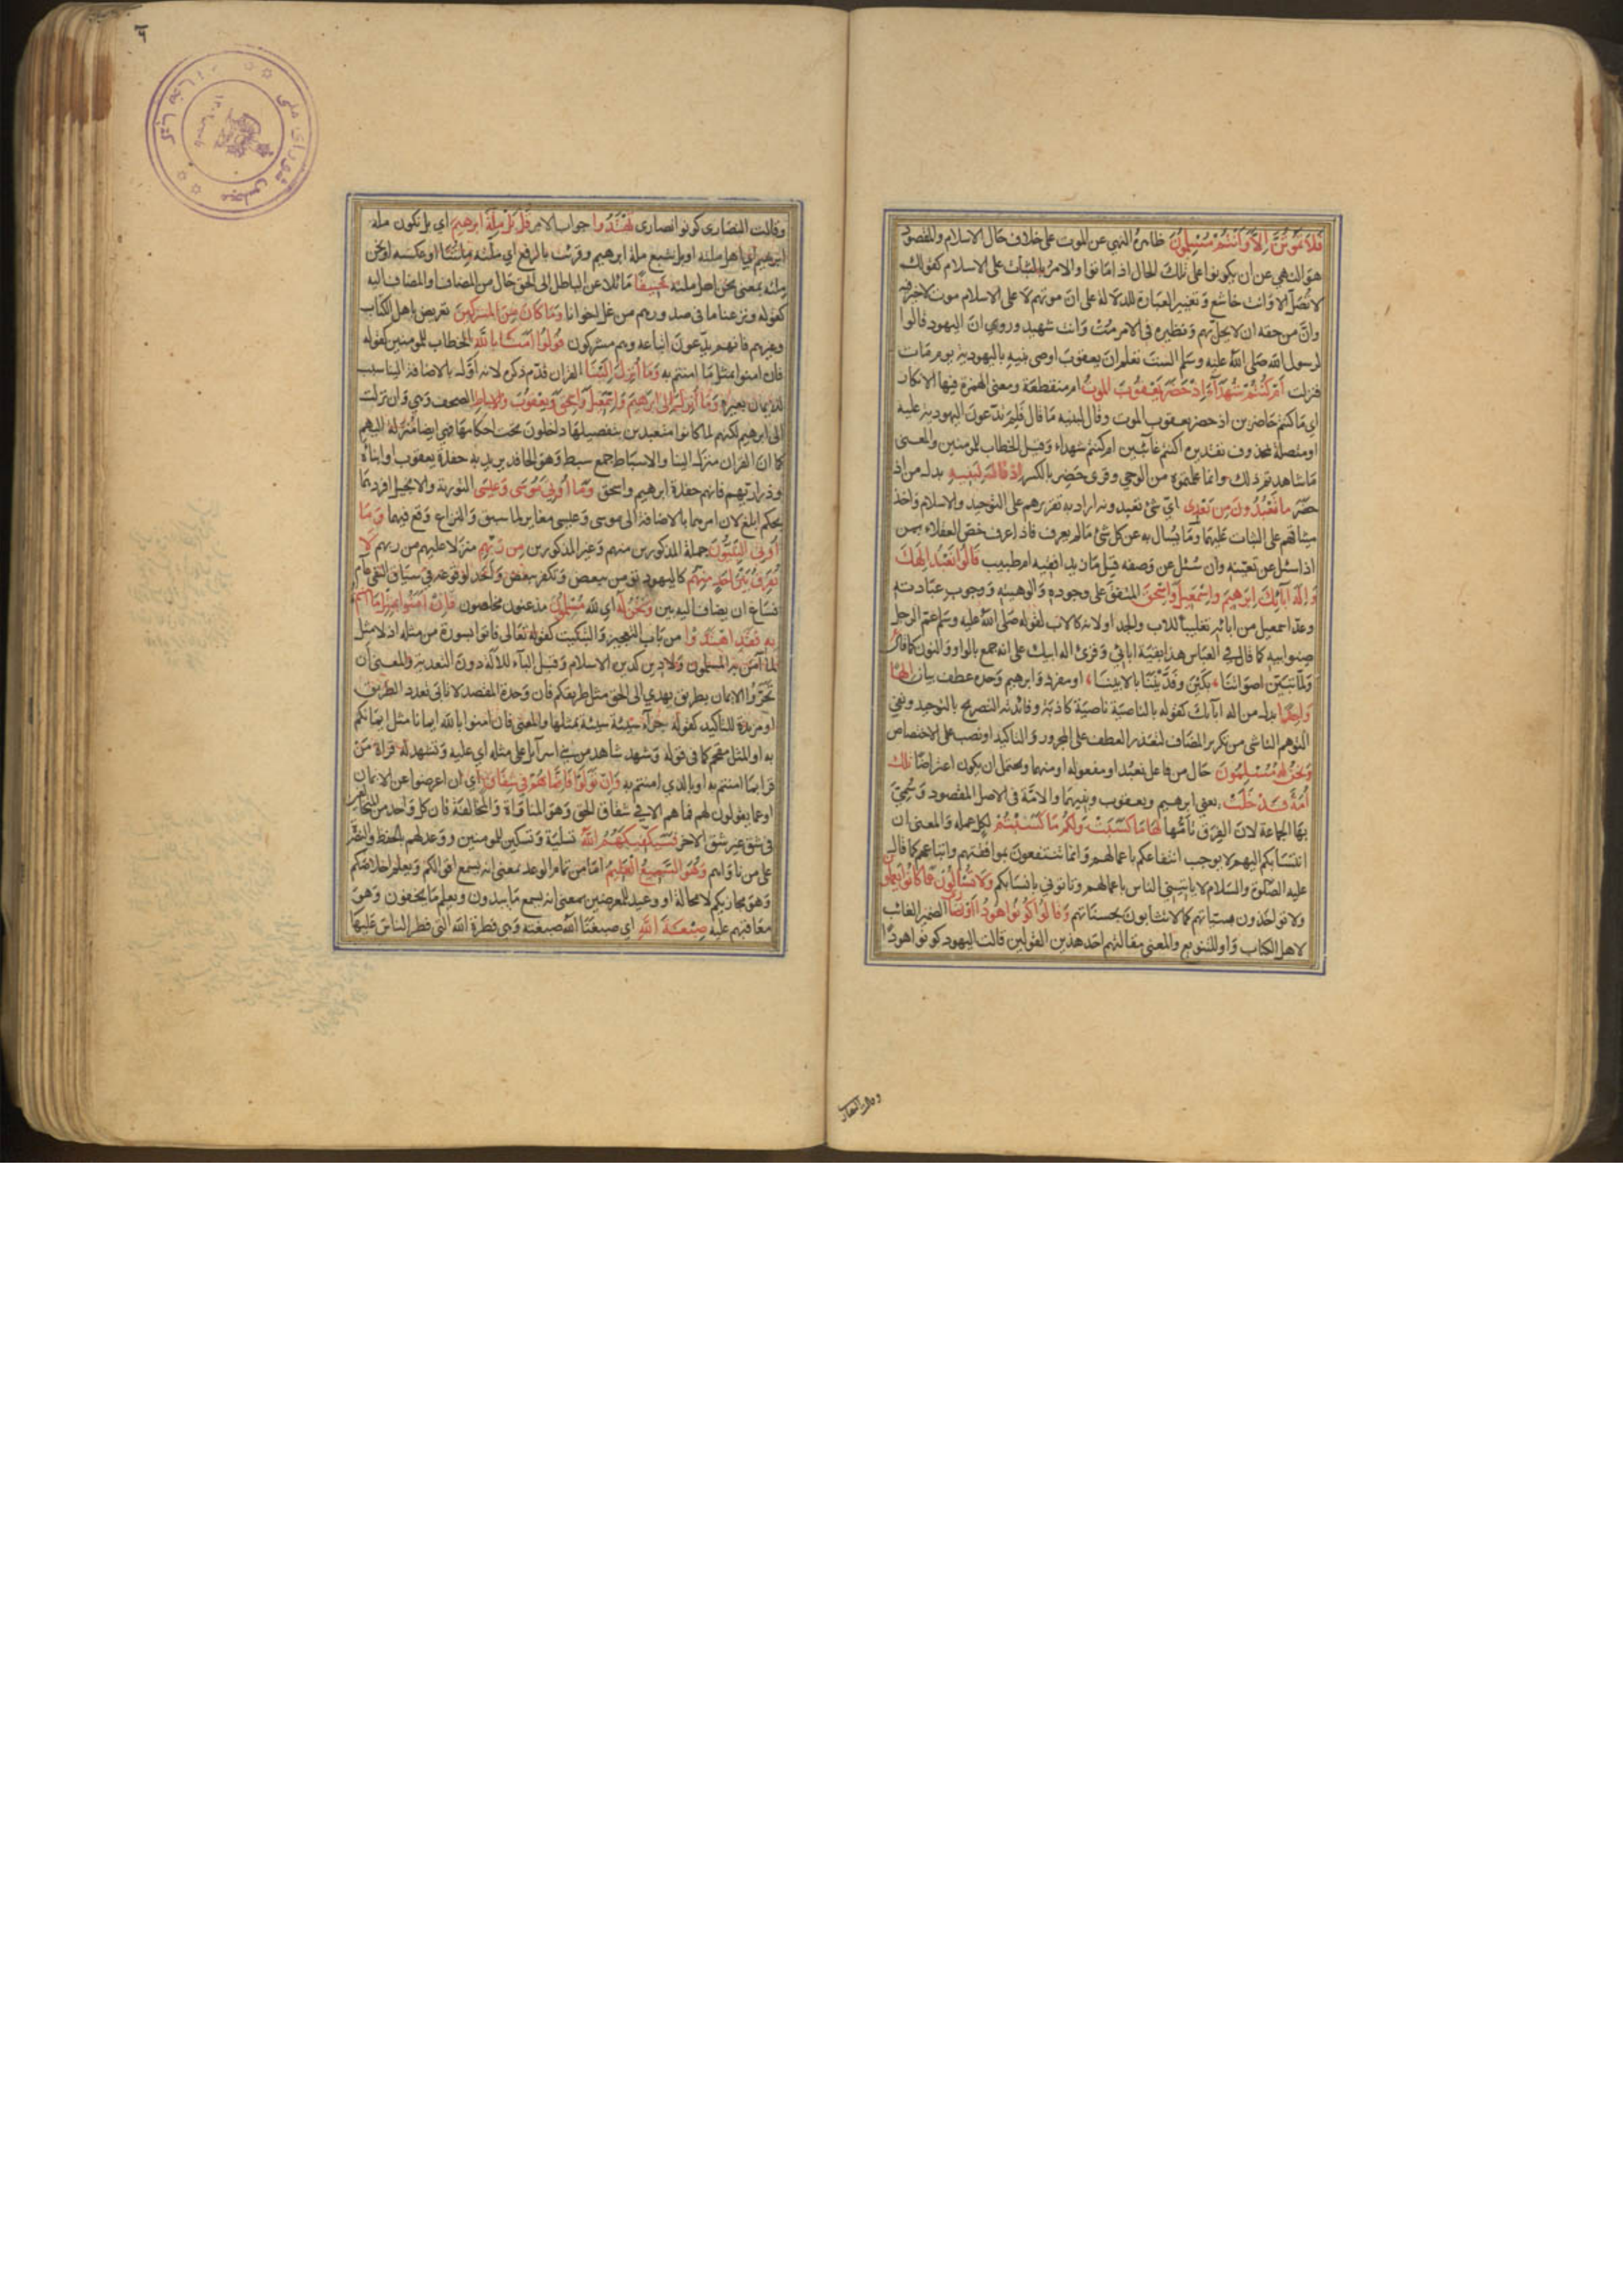 فَلَا تَمُوتُنَّ إِلَّا وَأَنْتُمْ مُسْلِمُونَ ظاهره النهي عن الموت على خلاف حال الاسلام والمقصود
هو النهي عن ان يكونوا على تلك الحال اذا ماتوا والامر بالثبات على الاسلام كقولك
لا تصل الا وانت خاشع وتغيير العبارة للدلالة على ان موتهم لا على الاسلام موت لا خير فيه
وان من حقه ان لا يحل بهم ونظيره في الامر مت وانت شهيد وروي ان اليهود قالوا
لرسول الله صلى الله عليه وسلم الست تعلم ان يعقوب اوصى بنيه باليهودية يوم مات
فنزلت أَمْ كُنْتُمْ شُهَدَآءَ إِذْ حَضَرَ يَعْقُوبَ الْمَوْتُ ام منقطعة ومعنى الهمزة فيها الانكار
اي ما كنتم حاضرين اذ حضر يعقوب الموت وقال لبنيه ما قال فلم تدعون اليهودية عليه
او متصلة بمحذوف تقديره اكنتم غائبين ام كنتم شهداء وقيل الخطاب للمومنين والمعنى
ما شاهدتم ذلك وانما علمتموه من الوحي وقرى حضر بالكسر إِذْ قَالَ لِبَنِيهِ بدل من اذ
حضر مَا تَعْبُدُونَ مِنْ بَعْدِى اي شئ تعبدونه اراد به تقريرهم على التوحيد والاسلام واخذ
ميثاقهم على الثبات عليهما وما يسال به عن كل شئ ما لم يعرف فاذا عرف خص العقلاء بمن
اذا سئل عن تعينه وان سئل عن وصفه قيل ما زيد افقيه ام طبيب قَالُوا نَعْبُدُ إِلَهَكَ
وَإِلَهَ آبَائِكَ إِبْرَهِيمَ وَإِسْمَعِيلَ وَإِسْحَقَ المتفق على وجوده والوهيته ووجوب عبادته
وعد اسمعيل من آبائه تغليبا للاب والجد او لانه كالاب لقوله صلى الله عليه وسلم عم الرجل
صنو ابيه كما قال في العباس هذا بقية ابائي وقرئ اله ابيك على انه جمع بالواو والنون كما قال
ولما تبين اصواتنا ، بكين وفديننا بالابينا ، او مفرد وابرهيم وحده عطف بيان إِلَهًا
وَاحِدًا بدل من اله آبائك كقوله بالناصية ناصية كاذبة وفائدته التصريح بالتوحيد ونفي
التوهم الناشى من تكرير المضاف لتعذر العطف على المجرور والتاكيد او نصب على الاختصاص
وَنَحْنُ لَهُ مُسْلِمُونَ حال من فاعل نعبد او مفعوله او منهما ويحتمل ان يكون اعتراضا تِلْكَ
أُمَّةٌ قَدْ خَلَتْ يعني ابرهيم ويعقوب وبنيهما والامة في الاصل المقصود وسمي
بها الجماعة لان الفرق تأمها لَهَا مَا كَسَبَتْ وَلَكُمْ مَا كَسَبْتُمْ لكل عمله والمعنى ان
انتسابكم اليهم لا يوجب انتفاعكم باعمالهم وانما تنتفعون بموافقتهم واتباعهم كما قال
عليه الصلوة والسلام لا ياتيني الناس باعمالهم وتاتوني بانسابكم وَلَا تُسْأَلُونَ عَمَّا كَانُوا يَعْمَلُونَ
ولا تواخذون بسيئاتهم كما لا تثابون بحسناتهم وَقَالُوا كُونُوا هُودًا أَوْ نَصَارَى الضمير الغائب
لاهل الكتاب واو للتنويع والمعنى مقالتهم احد هذين القولين قالت اليهود كونوا هودا
وقالت النصارى
وقالت النصارى كونوا نصارى تَهْتَدُوا جواب الامر قُلْ بَلْ مِلَّةَ إِبْرَهِيمَ اي بل نكون ملة
ابرهيم اي اهل ملته او بل نتبع ملة ابرهيم وقرئت بالرفع اي ملته ملتنا او عكسه او نحن
ملته بمعنى نحن اهل ملته حَنِيفًا مائلا عن الباطل الى الحق حال من المضاف او المضاف اليه
كقوله ونزعنا ما في صدورهم من غل اخوانا وَمَا كَانَ مِنَ الْمُشْرِكِينَ تعريض باهل الكتاب
وغيرهم فانهم يدعون اتباعه وهم مشركون قُولُوا آمَنَّا بِاللَّهِ الخطاب للمومنين كقوله
فان امنوا بمثل ما امنتم به وَمَا أُنْزِلَ إِلَيْنَا القران قدم ذكره لانه اول بالاضافة الينا سبب
للايمان بغيره وَمَا أُنْزِلَ إِلَى إِبْرَهِيمَ وَإِسْمَعِيلَ وَإِسْحَقَ وَيَعْقُوبَ وَالْأَسْبَاطِ الصحف وهي وان نزلت
الى ابرهيم لكنهم لما كانوا متعبدين بتفصيلها داخلون تحت احكامها فهي ايضا منزلة اليهم
كما ان القران منزل الينا والاسباط جمع سبط وهو الحافد يريد به حفدة يعقوب او ابناه
وذراريهم فانهم حفدة ابرهيم واسحق وَمَا أُوتِيَ مُوسَى وَعِيسَى التورية والانجيل افردهما
بحكم ابلغ لان امرهما بالاضافة الى موسى وعيسى مغاير لما سبق والنزاع وقع فيهما وَمَا
أُوتِيَ النَّبِيُّونَ جملة المذكورين منهم وغير المذكورين مِنْ رَبِّهِمْ منزلا عليهم من ربهم لَا
نُفَرِّقُ بَيْنَ أَحَدٍ مِنْهُمْ كاليهود نومن ببعض ونكفر ببعض واحد لوقوعه في سياق النفي عام
فساغ ان يضاف اليه بين وَنَحْنُ لَهُ اي لله مُسْلِمُونَ مذعنون مخلصون فَإِنْ آمَنُوا بِمِثْلِ مَا آمَنْتُمْ
بِهِ فَقَدِ اهْتَدَوْا من باب التعجيز والتبكيت كقوله تعالى فاتوا بسورة من مثله اذ لا مثل
لما آمن به المسلمون ولا دين كدين الاسلام وقيل الباء للالة دون التعدية والمعنى ان
تحروا الايمان بطريق يهدي الى الحق مثل طريقكم فان وحدة المقصد لا تابى تعدد الطريق
او مزيدة للتاكيد كقوله جزاء سيئة سيئة بمثلها والمعنى فان امنوا بالله ايمانا مثل ايمانكم
به او المثل مقحم كما في قوله وشهد شاهد من بني اسرآئيل على مثله اي عليه وتشهد له قراة من
قرا بما امنتم به او بالذي امنتم به وَإِنْ تَوَلَّوْا فَإِنَّمَا هُمْ فِي شِقَاقٍ اي ان اعرضوا عن الايمان
او عما يقولون لهم فما هم الا في شقاق الحق وهو المناواة والمخالفة فان كل واحد من المتخالفين
في شق غير شق الاخر فَسَيَكْفِيكَهُمُ اللَّهُ تسلية وتسكين للمومنين ووعد لهم بالحفظ والنصر
على من ناواهم وَهُوَ السَّمِيعُ الْعَلِيمُ اما من تمام الوعد بمعنى انه يسمع اقوالكم ويعلم اخلاصكم
وهو مجازيكم لا محالة او وعيد للمعرضين بمعنى انه يسمع ما يبدون ويعلم ما يخفون وهو
معاقبهم عليه صِبْغَةَ اللَّهِ اي صبغنا الله صبغته وهي فطرة الله التي فطر الناس عليها